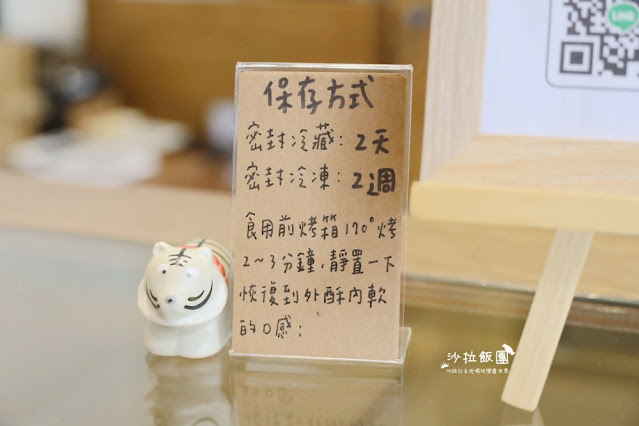 保存方式
密封冷藏：2天
密封冷凍：2週
食用前烤箱170°烤
2～3分鐘，靜置一下
恢復到外酥內軟
的口感；
LINE
沙拉飯團